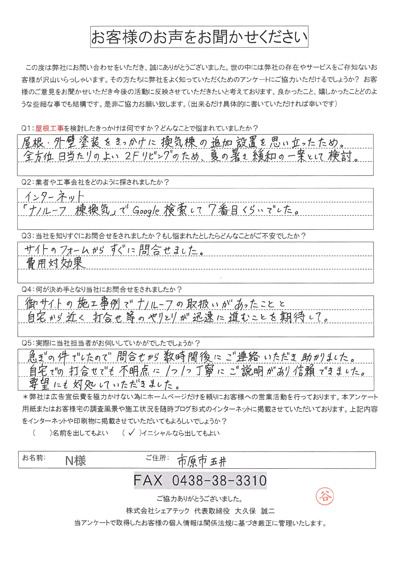 お客様のお声をお聞かせください
この度は弊社にお問い合わせをいただき、誠にありがとうございました。世の中には弊社の存在やサービスをご存知ないお
客様が沢山いらっしゃいます。その方たちに弊社をよく知っていただくためのアンケートにご協力いただけるでしょうか？ お客
様のご意見をお聞かせいただき今後の活動に反映させていただきたいと考えております。良かったこと、嬉しかったことどのよ
うな些細な事でも結構です。是非ご協力お願い致します。（出来るだけ具体的に書いていただければ幸いです）
Q1：屋根工事を検討したきっかけは何ですか？どんなことで悩まれていましたか？
屋根・外壁塗装をきっかけに換気棟の追加設置を思い立ったため。
全方位日当たりのよい2Fリビングのため、夏の暑さ緩和の一案として検討。
Q2：業者や工事会社をどのように探されましたか？
インターネット
「ナノルーフ 棟換気」でGoogle検索して7番目くらいでした。
Q3：当社を知りすぐにお問合せをされましたか？もし悩まれたとしたらどんなことがご不安でしたか？
サイトのフォームからすぐに問合せました。
費用対効果
Q4：何が決め手となり当社にお問合せをされましたか？
御サイトの施工事例でナノルーフの取扱いがあったことと
自宅から近く打合せ等のやりとりが迅速に進むことを期待して。
Q5：実際に当社担当者がお伺いしていかがでしたでしょうか？
急ぎの件でしたので問合せから数時間後にご連絡いただき助かりました。
自宅での打合せでも不明点に1つ1つ丁寧にご説明があり信頼できました。
要望にも対処していただきました。
＊弊社は広告宣伝費を極力かけない為にホームページだけを頼りにお客様への営業活動を行っております。本アンケート
用紙またはお客様宅の調査風景や施工状況を随時ブログ形式のインターネットに掲載させていただいております。上記内容
をインターネットや印刷物に掲載させていただいてもよろしいでしょうか？
（　）名前を出してもよい　（✓）イニシャルなら出してもよい
お名前： N様 ご住所： 市原市玉井
FAX 0438-38-3310
ご協力ありがとうございました。
株式会社シェアテック 代表取締役 大久保 誠二
谷
当アンケートで取得したお客様の個人情報は関係法規に基づき厳正に管理いたします。